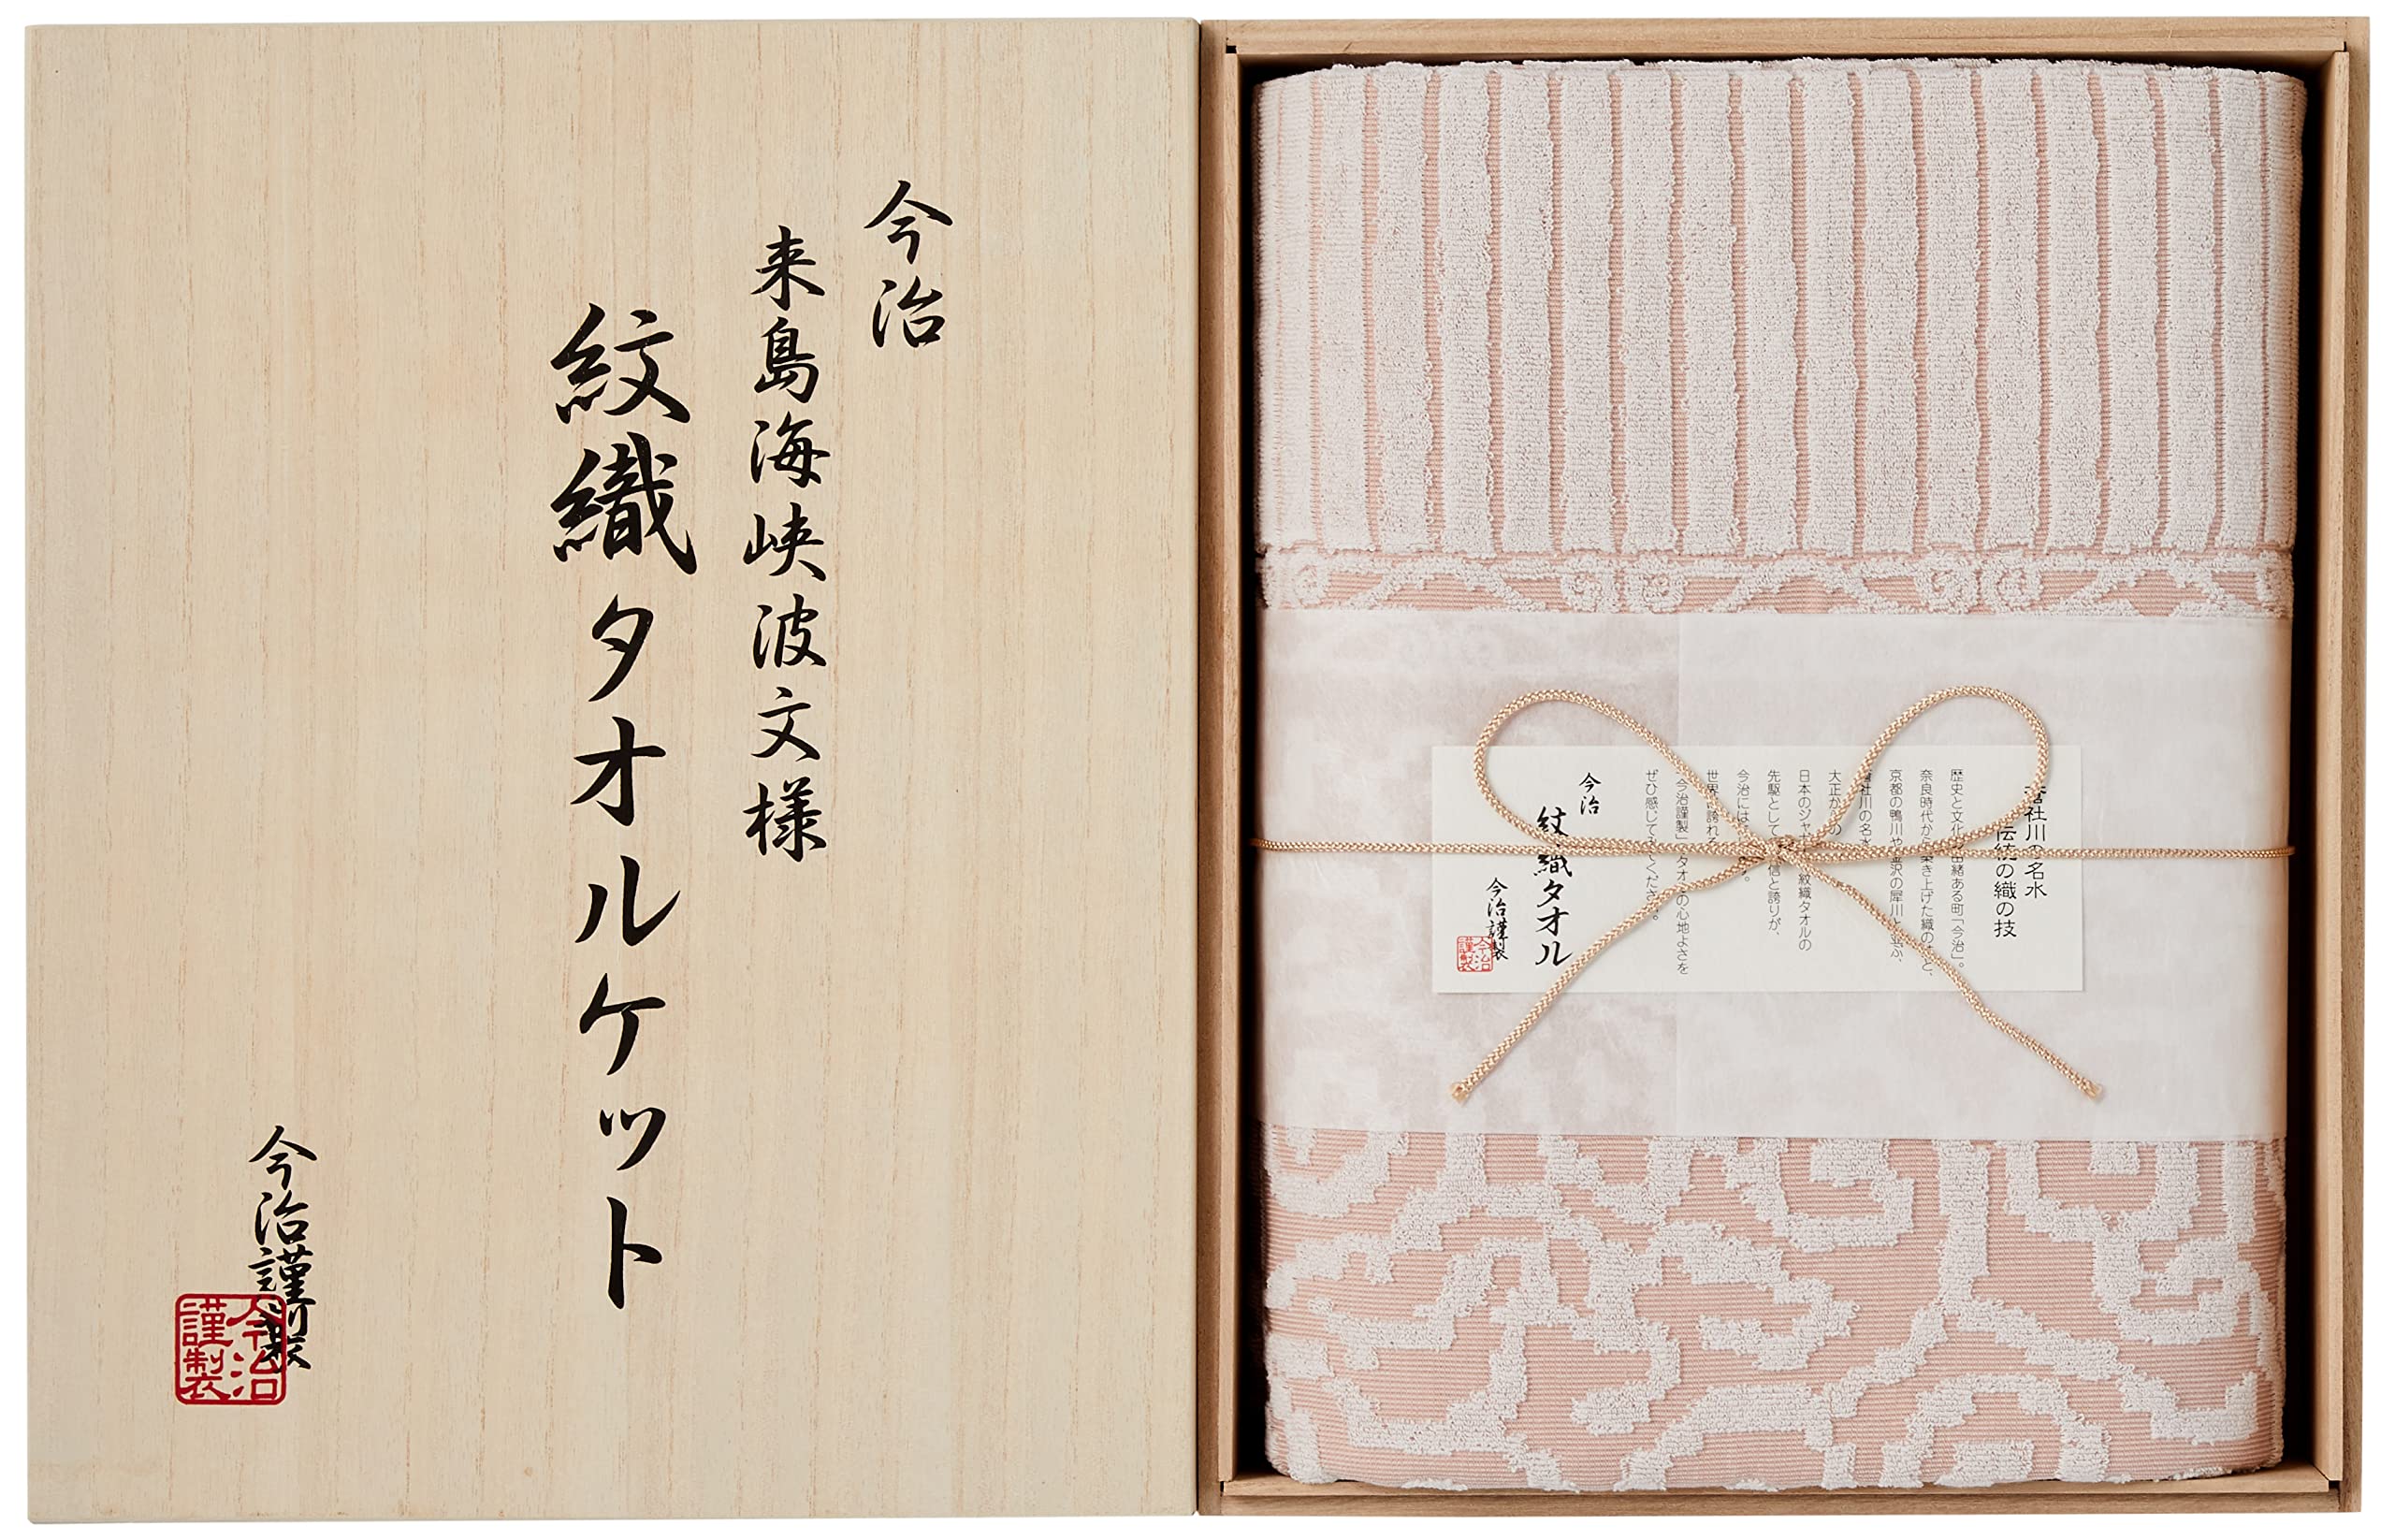 今治
来島海峡波文様
紋織タオルケット
今治謹製
今治
謹製
社川の名水
伝統の織の技
歴史と文化 由緒ある町「今治」。
奈良時代から築き上げた織の と、
京都の鴨川や金沢の犀川と並ぶ、
社川の名水
大正か の
日本のジャ 紋織タオルの
先駆として 信と誇りが、
今治には 。
世界に誇れる
「今治謹製」タオルの心地よさを
ぜひ感じてみてください。
今治
紋織タオル
今治謹製
今治
謹製